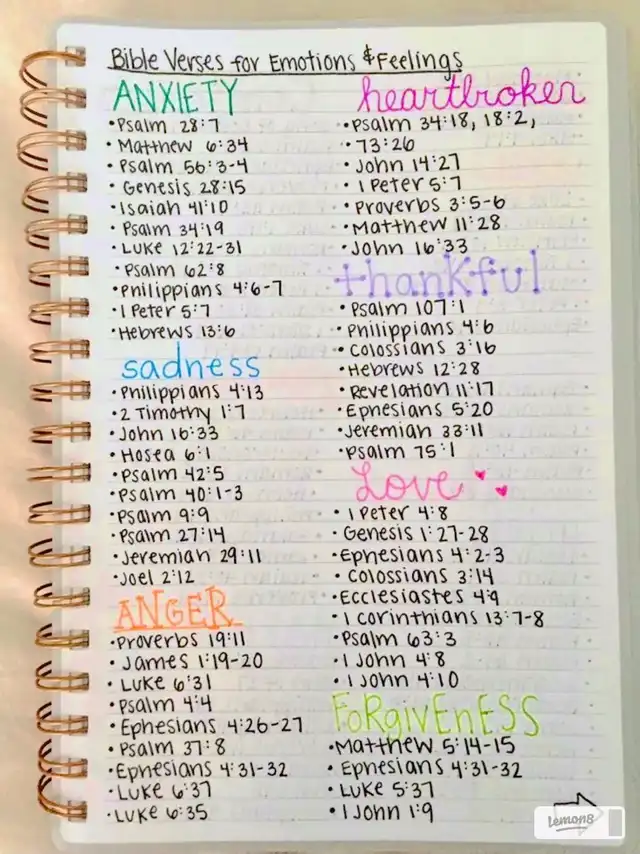 Bible Verses for Emotions & Feelings
ANXIETY
•Psalm 28:7
•Matthew 6:34
•Psalm 56:3-4
•Genesis 28:15
•Isaiah 41:10
•Psalm 34:19
•Luke 12:22-31
•Psalm 62:8
•Philippians 4:6-7
•1 Peter 5:7
•Hebrews 13:6
sadness
•Philippians 4:13
•2 Timothy 1:7
•John 16:33
•Hosea 6:1
•Psalm 42:5
•Psalm 40:1-3
•Psalm 9:9
•Psalm 27:14
•Jeremiah 29:11
•Joel 2:12
ANGER
•Proverbs 19:11
•James 1:19-20
•Luke 6:31
•Psalm 4:4
•Ephesians 4:26-27
•Psalm 37:8
•Ephesians 4:31-32
•Luke 6:37
•Luke 6:35
heartbroken
•Psalm 34:18, 18:2,
•73:26
•John 14:27
•1 Peter 5:7
•Proverbs 3:5-6
•Matthew 11:28
•John 16:33
thankful
•Psalm 107:1
•Philippians 4:6
•Colossians 3:16
•Hebrews 12:28
•Revelation 11:17
•Ephesians 5:20
•Jeremiah 33:11
•Psalm 75:1
Love
•1 Peter 4:8
•Genesis 1:27-28
•Ephesians 4:2-3
•Colossians 3:14
•Ecclesiastes 4:9
•1 Corinthians 13:7-8
•Psalm 63:3
•1 John 4:8
•1 John 4:10
FoRgivEnESS
•Matthew 5:14-15
•Ephesians 4:31-32
•Luke 5:37
•1 John 1:9
Lemon8